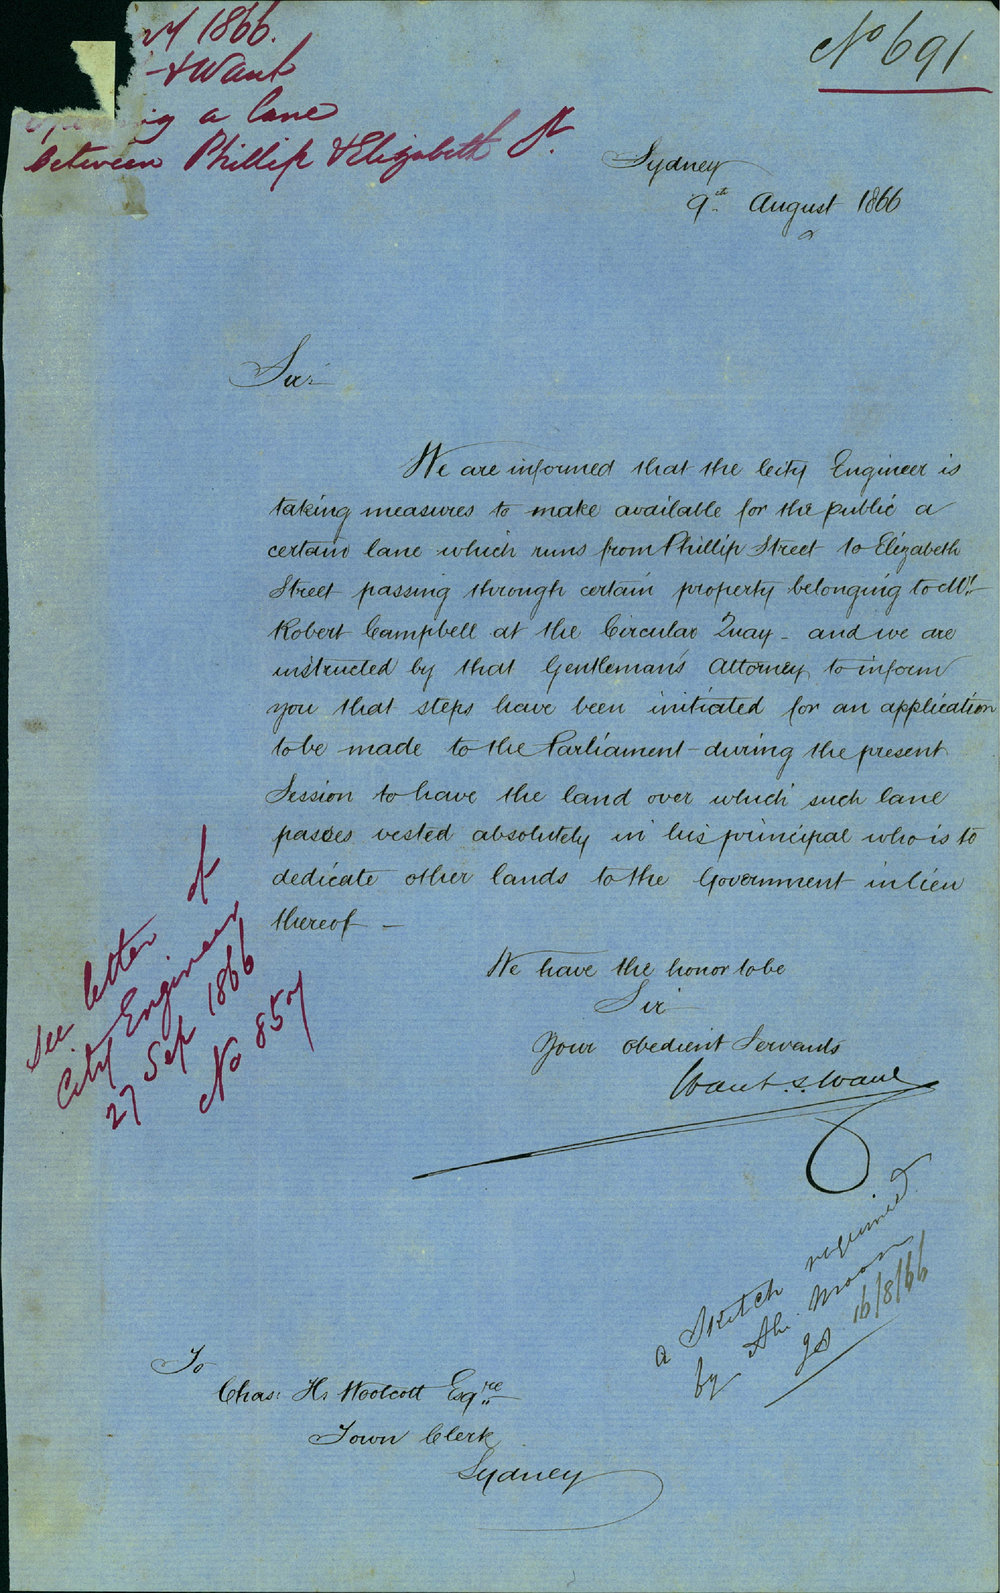 1866.
& Want
a lane
between Phillip & Elizabeth St.
No 691
Sydney
9th August 1866
Sir
We are informed that the City Engineer is
taking measures to make available for the public a
certain lane which runs from Phillip Street to Elizabeth
Street passing through certain property belonging to Mr.
Robert Campbell at the Circular Quay - and we are
instructed by that Gentleman's Attorney to inform
you that steps have been initiated for an application
to be made to the Parliament during the present
Session to have the land over which such lane
passes vested absolutely in his principal who is to
dedicate other lands to the Government in lieu
thereof -
We have the honor to be
Sir
Your obedient Servants
Want & Want
See letter of
City Engineer
27 Sep 1866
No 857
a Sketch required
by Ald. Moon
16/8/66
To
Chas: H. Woolcott Esqre
Town Clerk
Sydney